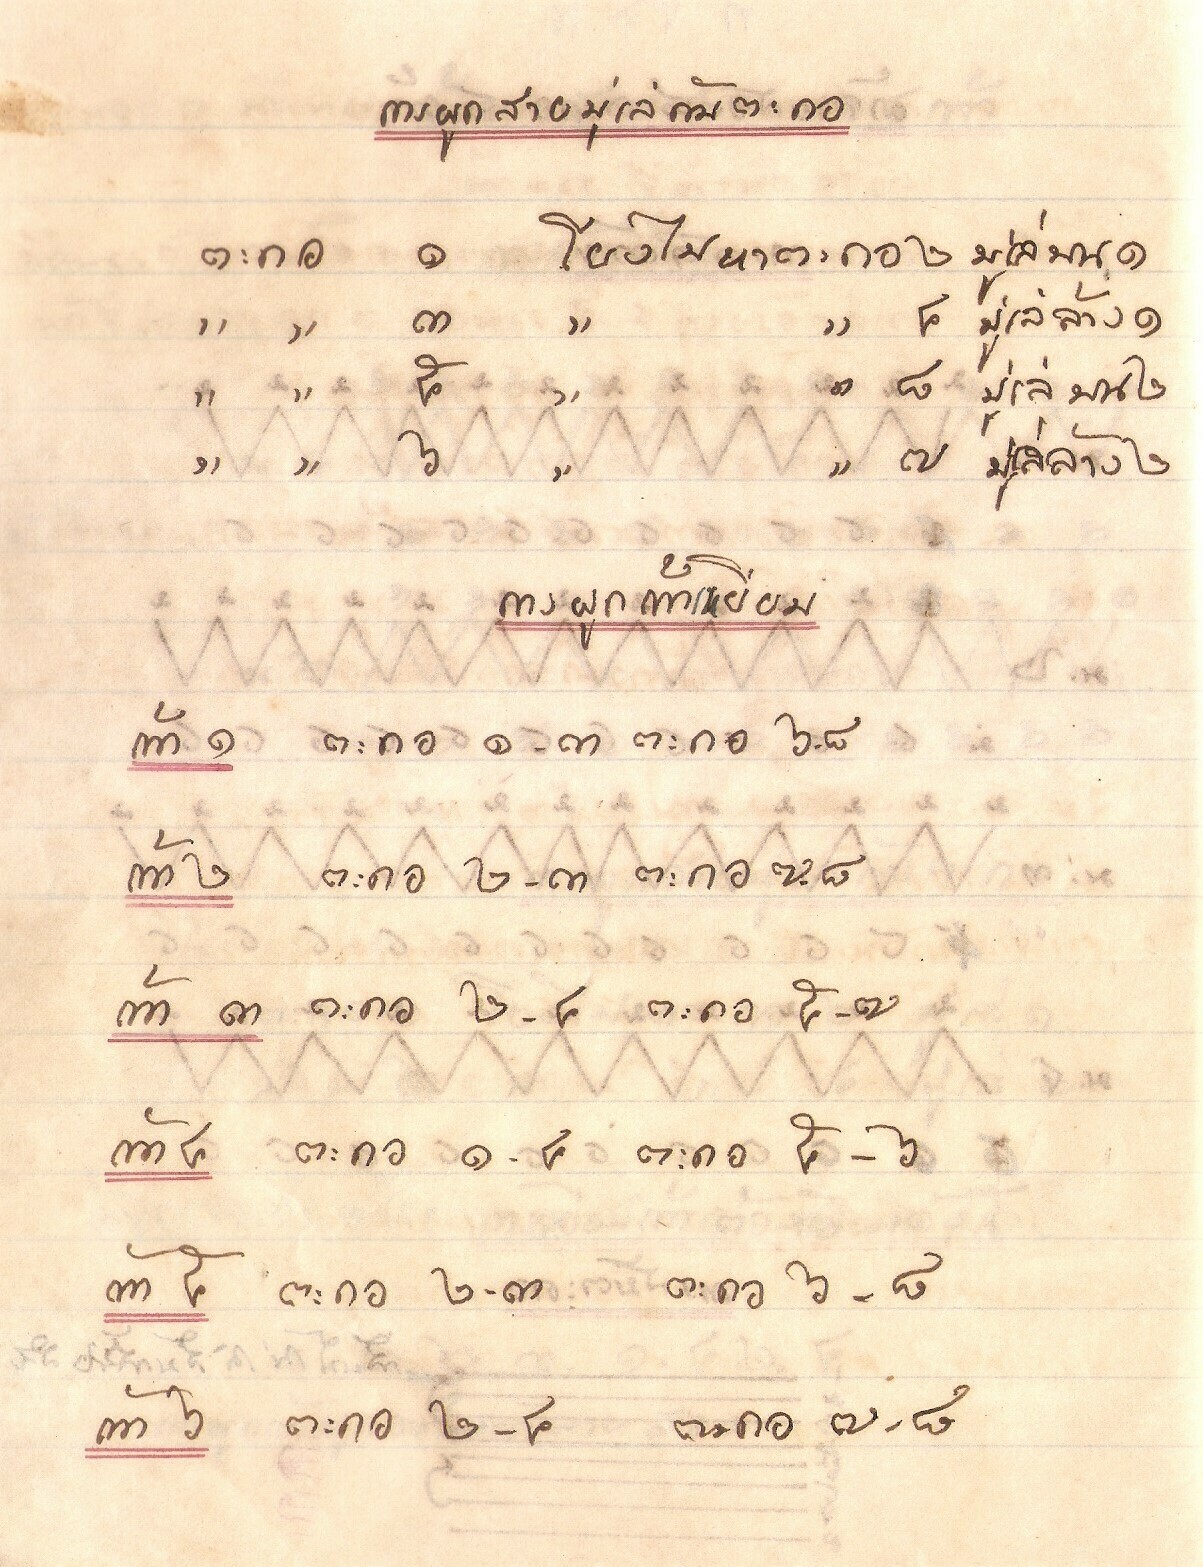 การผูกสายมู่เล่กับตะกอ
ตะกอ ๑ โยงไปหาตะกอ ๒ มู่เล่บน ๑
" " ๓ " " ๔ มู่เล่ล่าง ๑
" " ๕ " " ๘ มู่เล่บน ๒
" " ๖ " " ๗ มู่เล่ล่าง ๒
การผูกไม้เหยี่ยบ
ไม้ ๑ ตะกอ ๑ - ๓ ตะกอ ๖-๘
ไม้ ๒ ตะกอ ๒ - ๓ ตะกอ ๗-๘
ไม้ ๓ ตะกอ ๒ - ๔ ตะกอ ๕ - ๗
ไม้ ๔ ตะกอ ๑ - ๔ ตะกอ ๕ - ๖
ไม้ ๕ ตะกอ ๒ - ๓ ตะกอ ๖ - ๘
ไม้ ๖ ตะกอ ๒ - ๔ ตะกอ ๗ - ๘